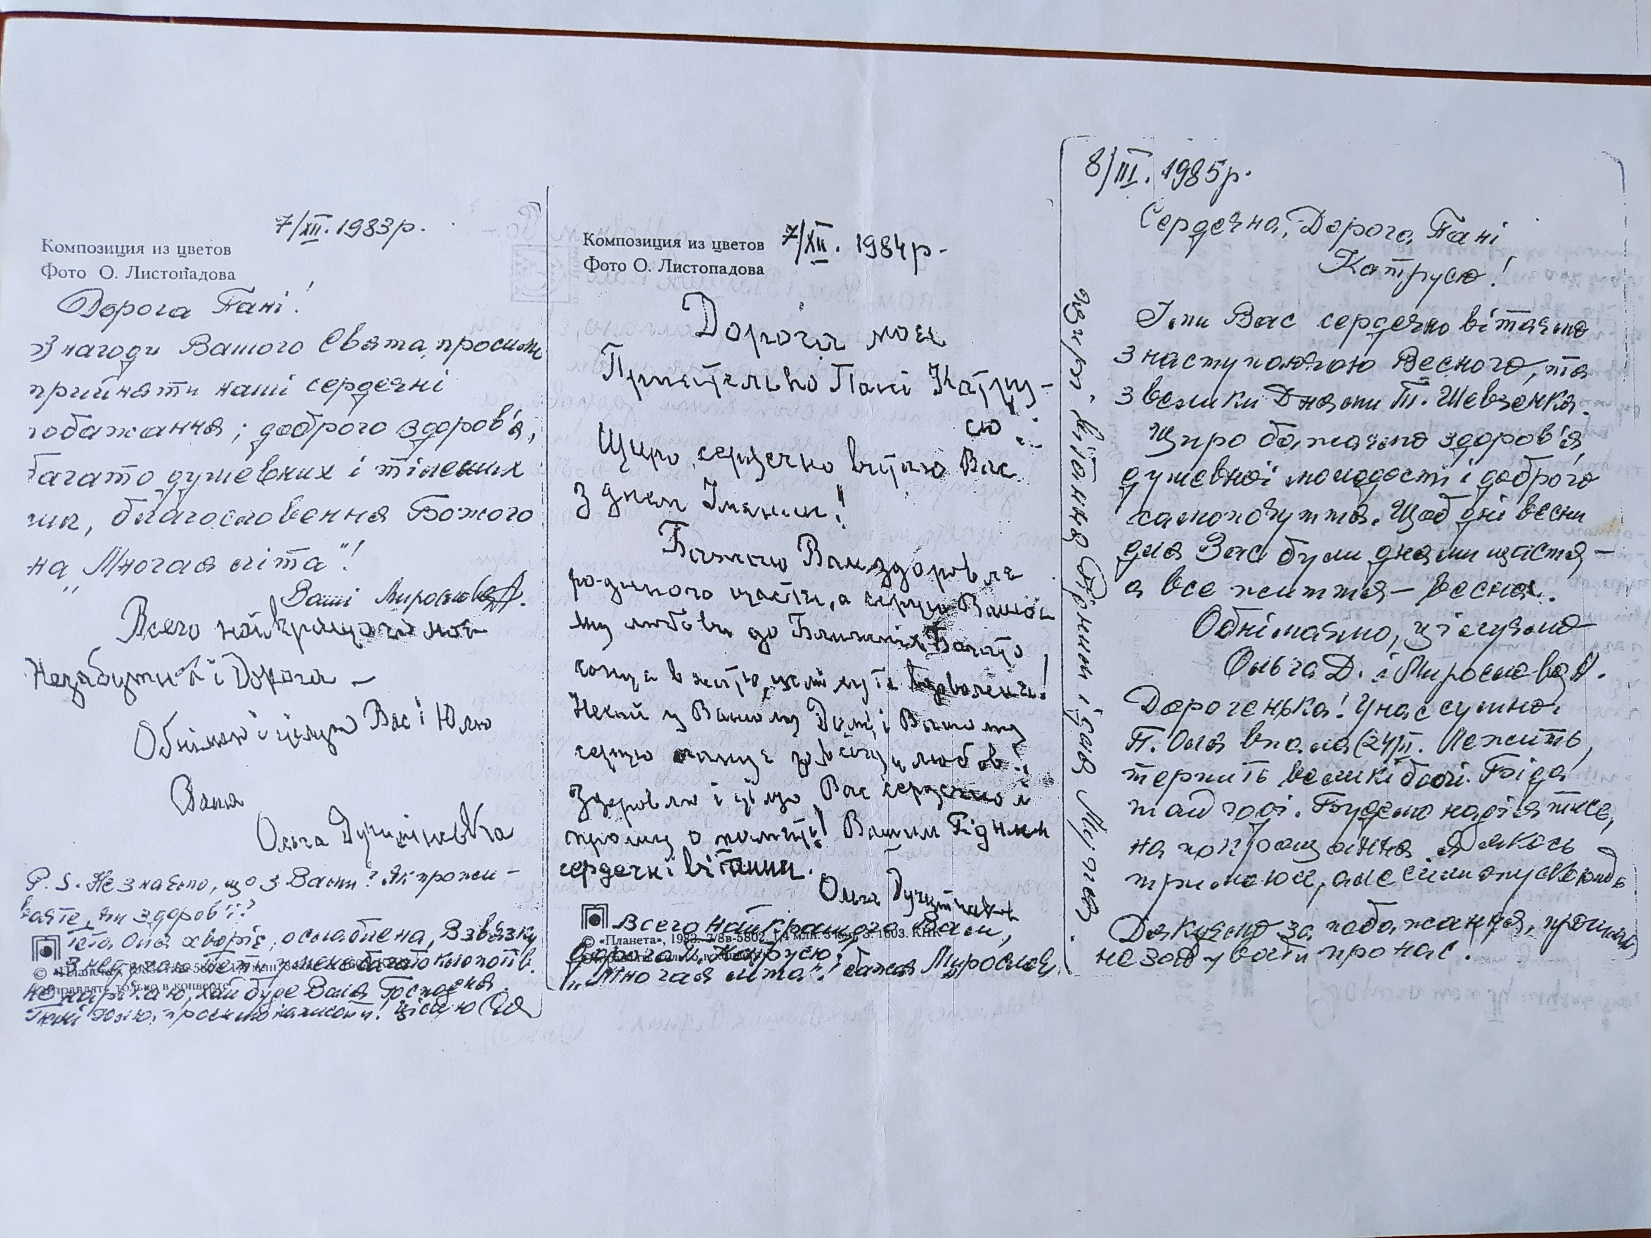 7/XII. 1983р.
Композиция из цветов
Фото О. Листопадова
Дорога Пані!
З нагоди Вашого Свята, просимо
прийняти наші сердечні
побажання; доброго здоров'я,
багато душевних і тілесних
сил, благословення Божого
на "Многая літа"!
Ваші Мирослава.
Всего найкращого моя
Незабутня і Дорога –
Обнімаю і цілую Вас і Юлю
Ваша
Ольга Дучимінська
P.S. Не знаємо, що з Вами? Як прожи-
ваєте, чи здорові?
Оля хворіє, ослаблена, В зв'язку
з нею
не нарікаю, хай буде Воля Господня.
просимо написати! Цілую
© «Планета»,
Отправлять только в конверте
Композиция из цветов
Фото О. Листопадова
7/XII. 1984р.
Дорога моя
Приятелько Пані Катру-
сю!
Щиро, сердечно вітаю Вас
з днем Іменин!
Бажаю Вам здоровля
родинного щастя, а серцю Вашо-
му любови до Ближніх. Багато
сонця в життю,
Нехай у Вашому Домі і Вашому
серцю
Здоровлю і цілую Вас сердечно і
прошу о память! Вашим Рідним
сердечні вітання.
Ольга Дучимінська
Всего найкращого Вам,
© «Планета», 1983.
дорога п. Катрусю,
"Многая літа"! бажає Мирослава
8/III. 1985р.
Сердечна, Дорога Пані
Катрусю!
Вас сердечно вітаємо
з наступаючою Весною, та
з великими Днями Т. Шевченка.
Щиро бажаємо здоров'я,
душевної молодості і доброго
самопочуття. Щоб дні весни
для Вас були днями щастя –
а все життя – весна.
Обнімаємо, цілуємо
Ольга Д. і Мирослава
Дорогенька! У нас сумно.
П. Оля впала (24/II. Лежить,
терпить великі болі. Біда
тай годі. Будемо надіятися,
на покращання. Я якось
тримаюся, але сили опускають
Дякуємо за побажання, просимо
не забувати про нас.
Щирі вітання Рідним і